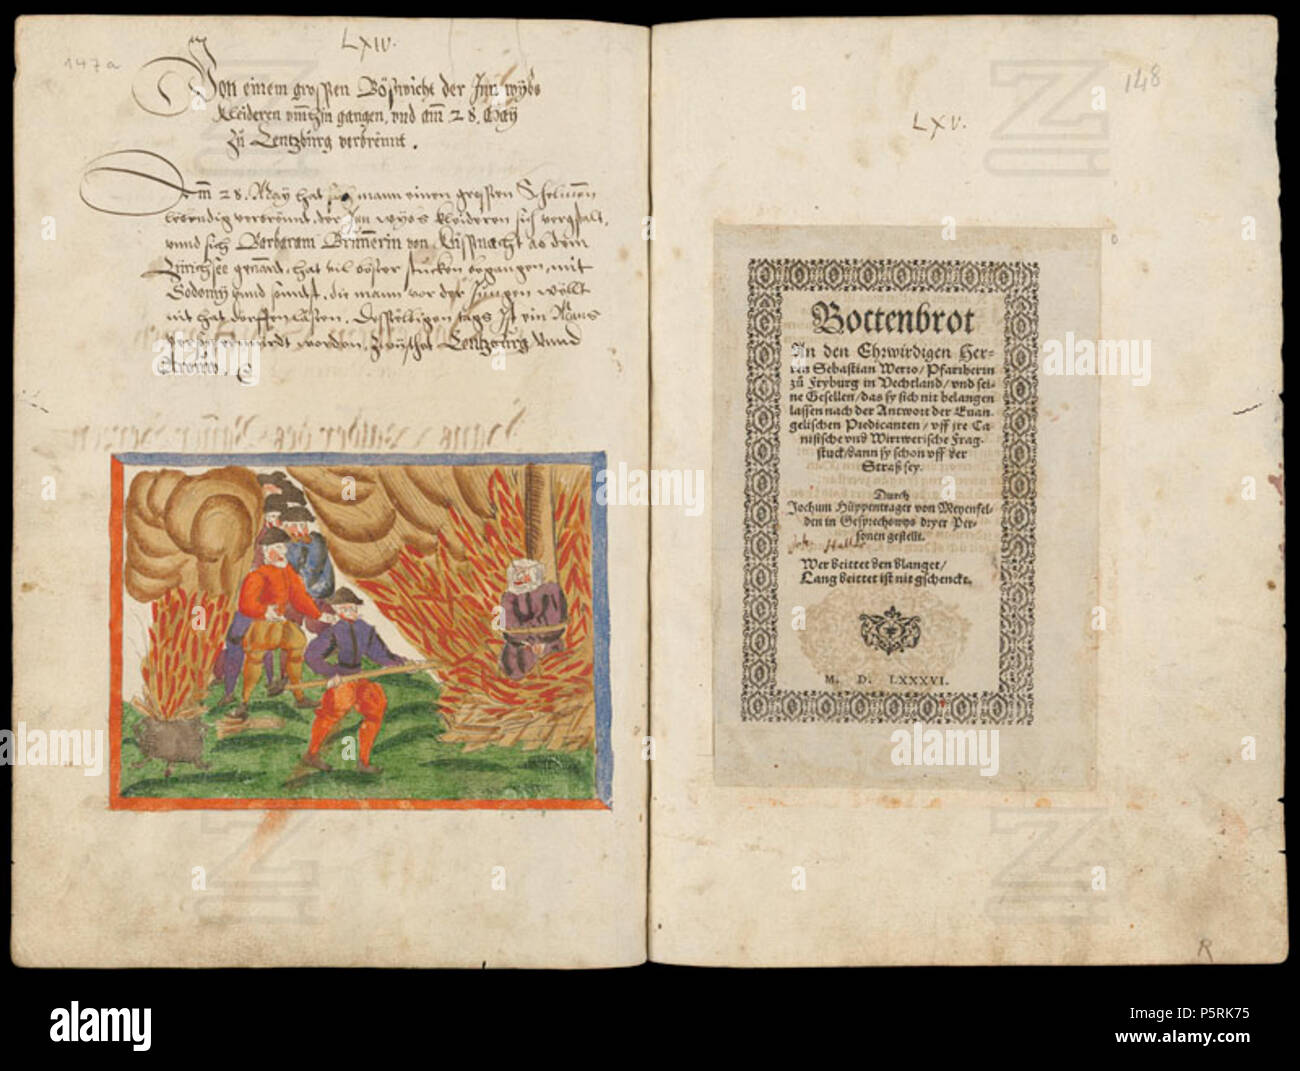 147a
LXIV.
Von einem grossen Bösswicht der Inn wybs
kleideren umbhin gangen, und am 28. May
zů Lentzburg verbrënnt.
Am 28. May hat man einen grossen Schelmen
lebendig verbrënnt, der Inn wybs kleideren sich
unnd sich Barbaram Brünnerin von Küssnacht ab dem
Zürichsee genannt, hat vil böser stucken begangen, mit
Sodomy unnd sünst, die mann vor der Jungen wöllt
nit hat dörffen läsen. Desselbigen tags Ist ein
worden, zwüschet Lentzburg unnd
148
LXV.
Bottenbrot
An den Ehrwirdigen Her-
ren Sebastian Werro / Pfarrherin
zů Fryburg in Vechtland / vnd sei-
ne Gesellen / das sy sich nit belangen
lassen nach der Antwort der Euan-
gelischen Predicanten / vff jre Ca-
nisische vnd Wirrwerische Frag-
stuck / dann sy schon vff der
Straß sey.
Durch
Jochum Hüppentrager von Meyenfel-
den in Gesprechswys dryer Per-
sonen gestellt.
Wer beittet den blanget /
Lang beittet ist nit gschenckt.
M. D. LXXXVI.
R
alamy
Image ID: P5RK75
www.alamy.com